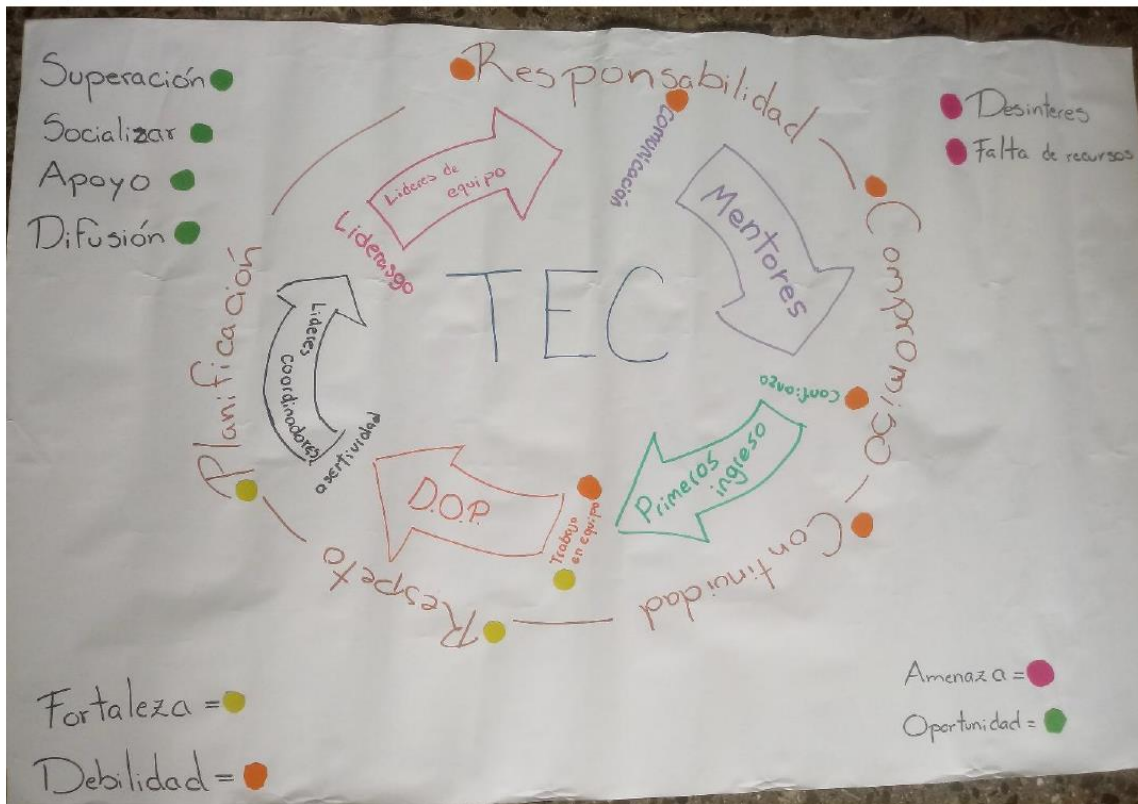 Superación
Socializar
Apoyo
Difusión
Responsabilidad
Compromiso
Continuidad
Respeto
Planificación
Desinteres
Falta de recursos
Lideres de
equipo
Liderasgo
Comunicación
Mentores
Confianza
Primeros
ingreso
Trabajo
en equipo
D.O.P.
asertividad
Lideres
coordinadores
TEC
Fortaleza =
Debilidad =
Amenaza =
Oportunidad =